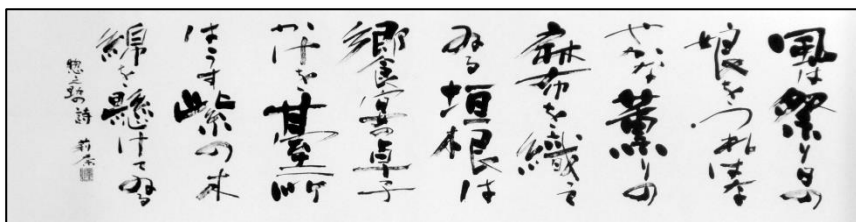 風は祭り日の
娘をつれはな
やかな薫りの
麻布を織て
ゐる垣根は
饗宴の卓子
かけを臺所
はうす紫の木
綿を懸けてゐる
惣之助の詩